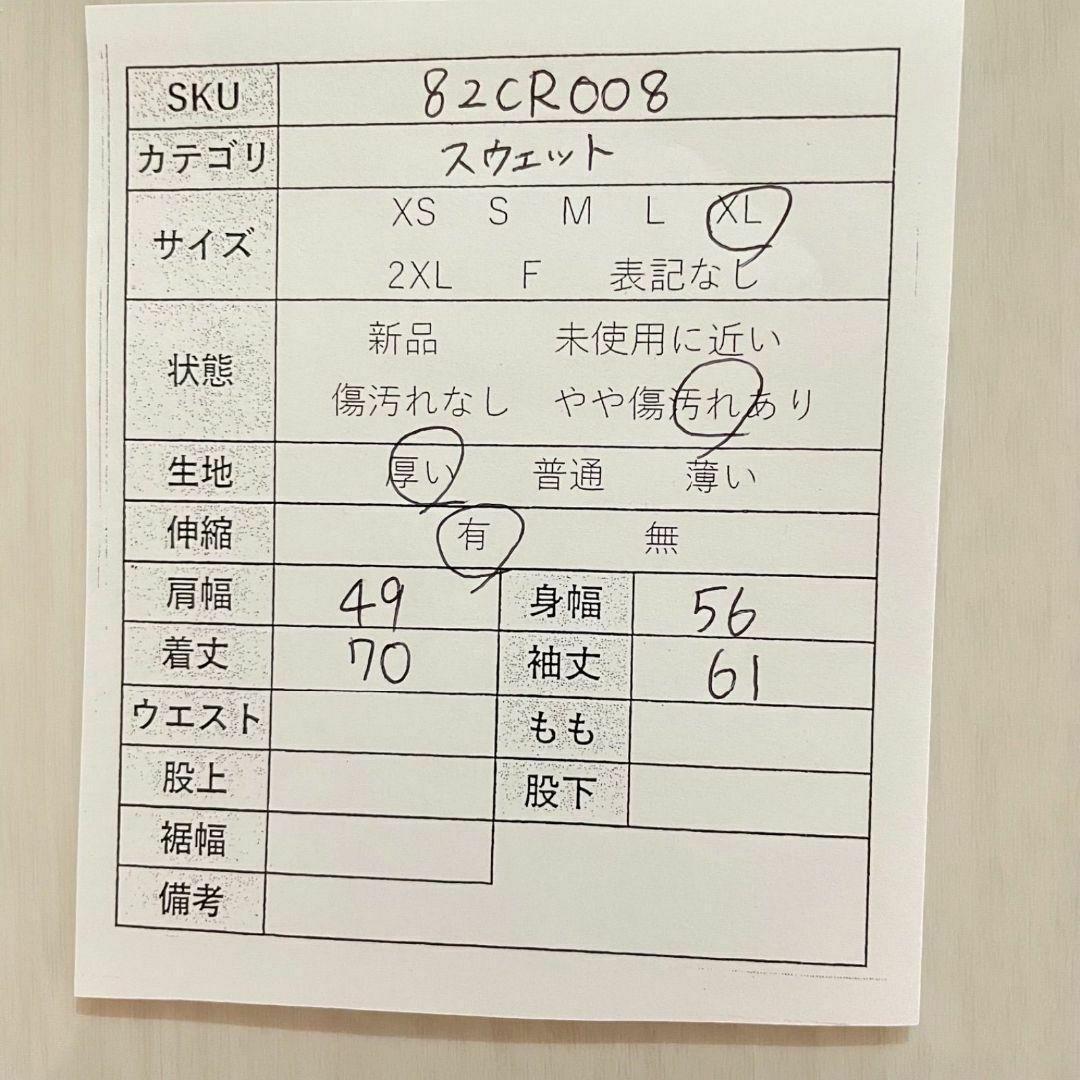 SKU 82CR008
カテゴリ スウェット
サイズ XS S M L XL
2XL F 表記なし
状態 新品 未使用に近い
傷汚れなし やや傷汚れあり
生地 厚い 普通 薄い
伸縮 有 無
肩幅 49 身幅 56
着丈 70 袖丈 61
ウエスト もも
股上 股下
裾幅
備考